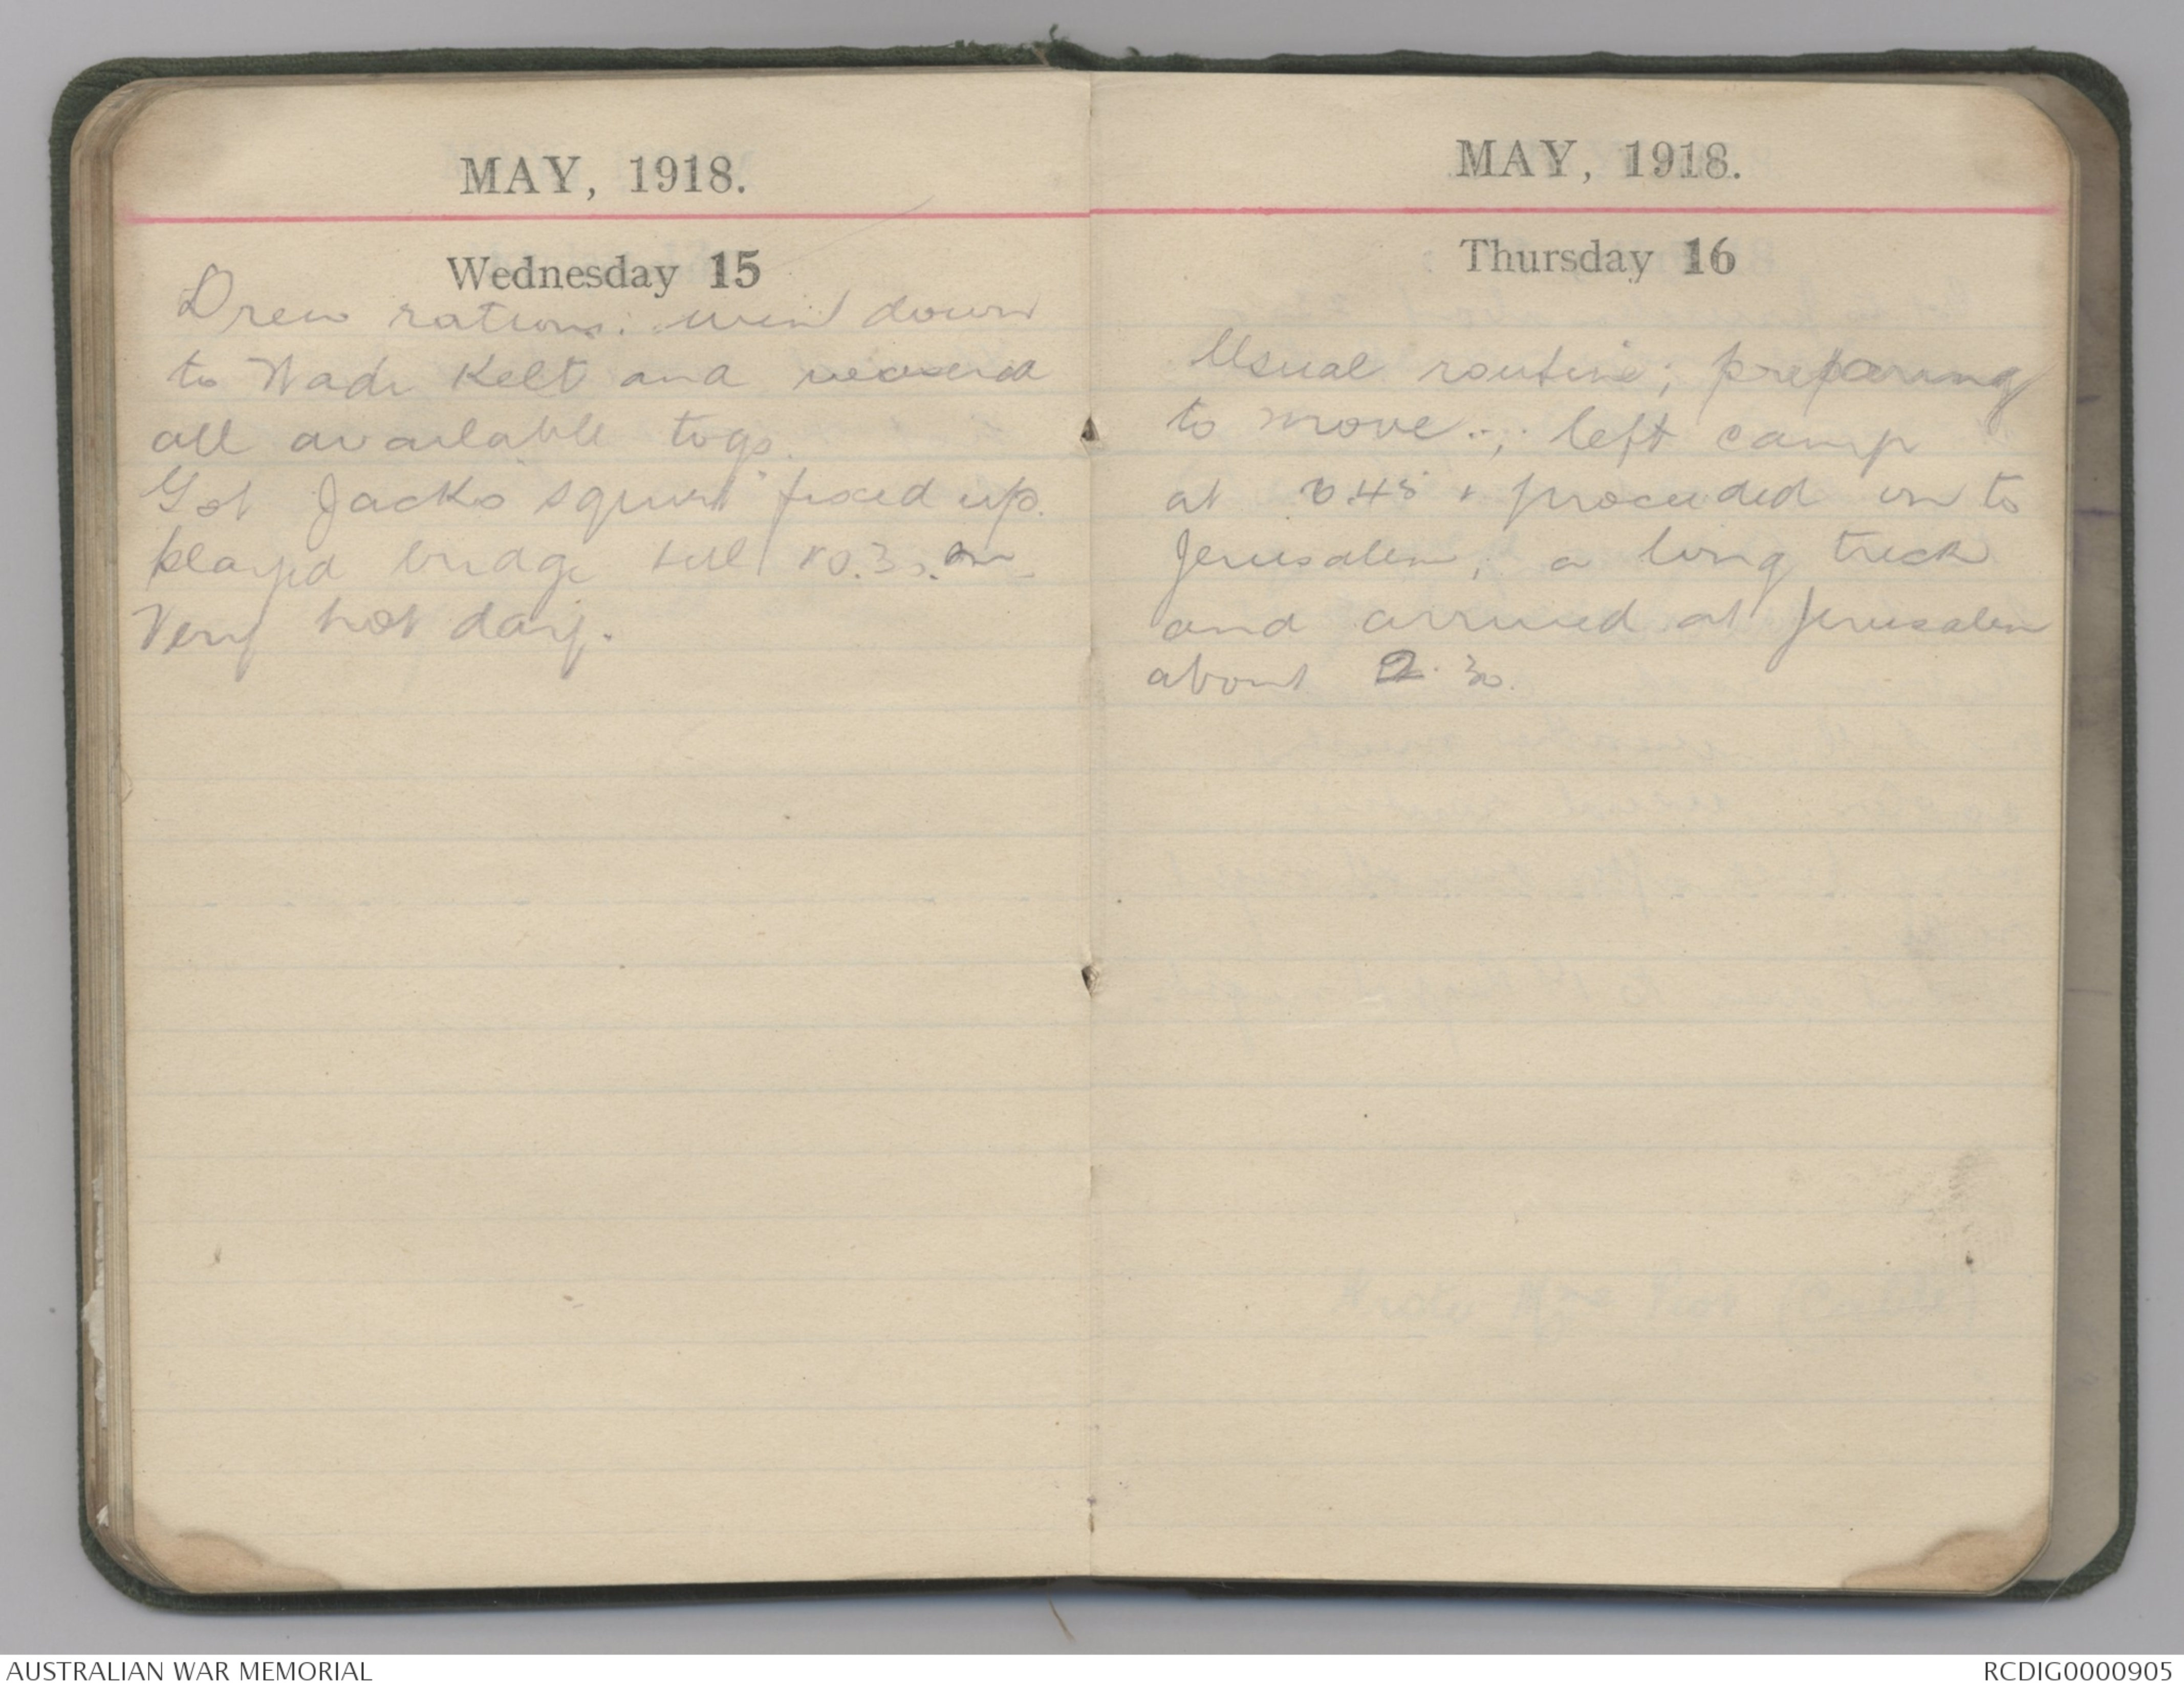 MAY, 1918.
Wednesday 15
Drew rations: went down
to Wadi Kelt and washed
all available togs.
Got Jacks squirt fixed up.
played bridge till 10.30.
Very hot day.
MAY, 1918.
Thursday 16
Usual routine; preparing
to move.; left camp
at .45 & proceeded on to
Jerusalem, a long treck
and arrived at Jerusalem
about 2.30.
AUSTRALIAN WAR MEMORIAL
RCDIG0000905